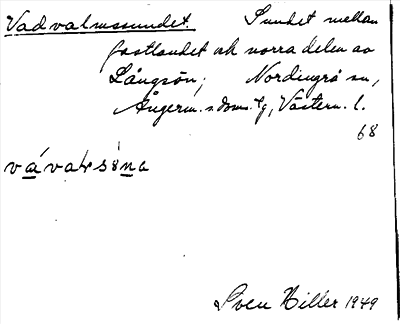 Vadvalmssundet. Sundet mellan
fastlandet och norra delen av
Långsön; Nordingrå sn,
Ångerm. s. doms. tg, Västern. l.
68
vávaḷmsúna
Sven Hiller 1949